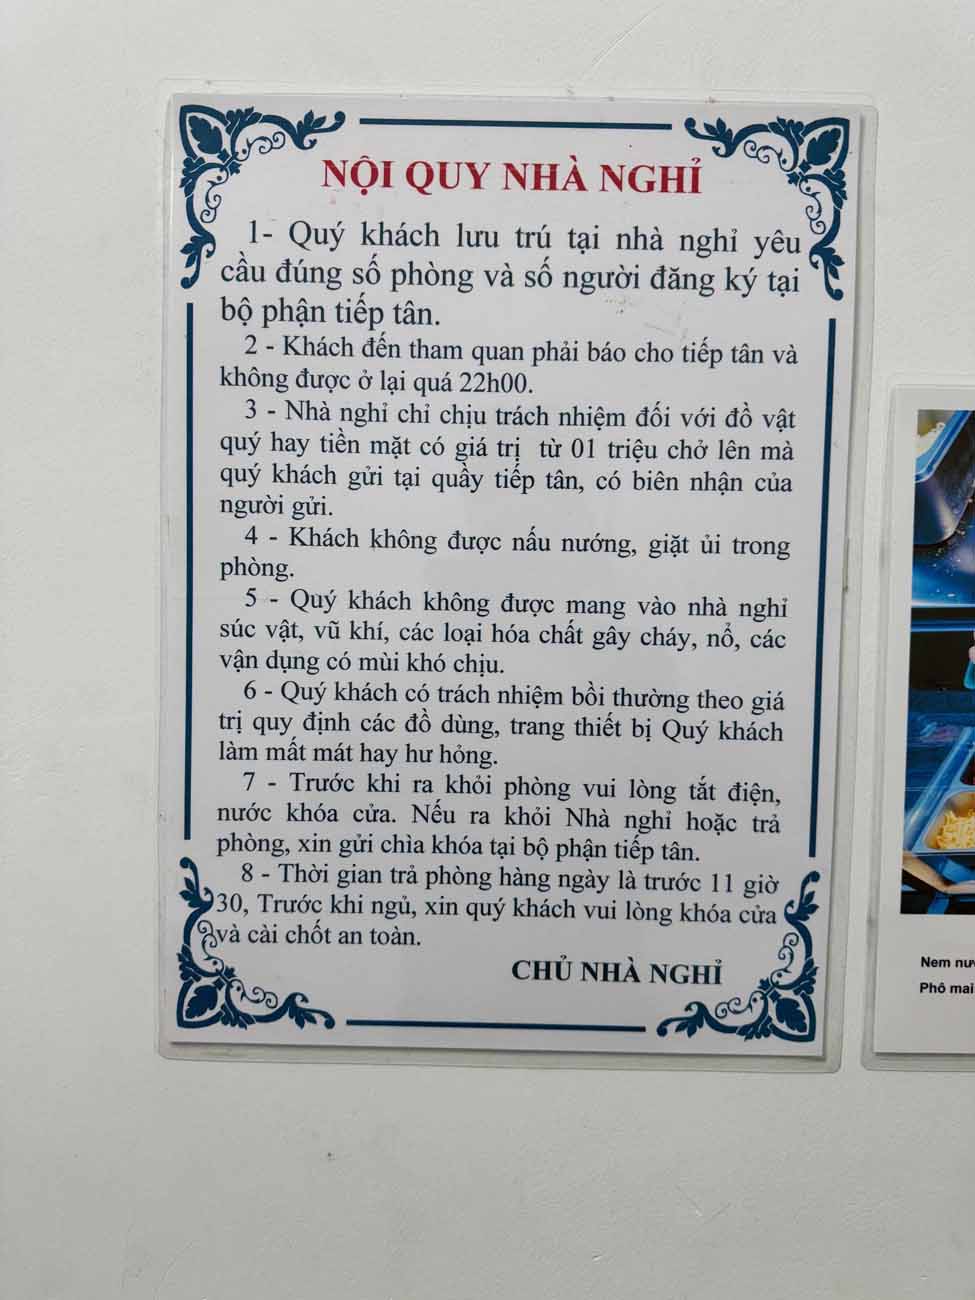 NỘI QUY NHÀ NGHỈ
1- Quý khách lưu trú tại nhà nghỉ yêu
cầu đúng số phòng và số người đăng ký tại
bộ phận tiếp tân.
2 - Khách đến tham quan phải báo cho tiếp tân và
không được ở lại quá 22h00.
3 - Nhà nghỉ chỉ chịu trách nhiệm đối với đồ vật
quý hay tiền mặt có giá trị từ 01 triệu chở lên mà
quý khách gửi tại quầy tiếp tân, có biên nhận của
người gửi.
4 - Khách không được nấu nướng, giặt ủi trong
phòng.
5 - Quý khách không được mang vào nhà nghỉ
súc vật, vũ khí, các loại hóa chất gây cháy, nổ, các
vận dụng có mùi khó chịu.
6 - Quý khách có trách nhiệm bồi thường theo giá
trị quy định các đồ dùng, trang thiết bị Quý khách
làm mất mát hay hư hỏng.
7 - Trước khi ra khỏi phòng vui lòng tắt điện,
nước khóa cửa. Nếu ra khỏi Nhà nghỉ hoặc trả
phòng, xin gửi chìa khóa tại bộ phận tiếp tân.
8 - Thời gian trả phòng hàng ngày là trước 11 giờ
30, Trước khi ngủ, xin quý khách vui lòng khóa cửa
và cài chốt an toàn.
CHỦ NHÀ NGHỈ
Nem
Phô mai